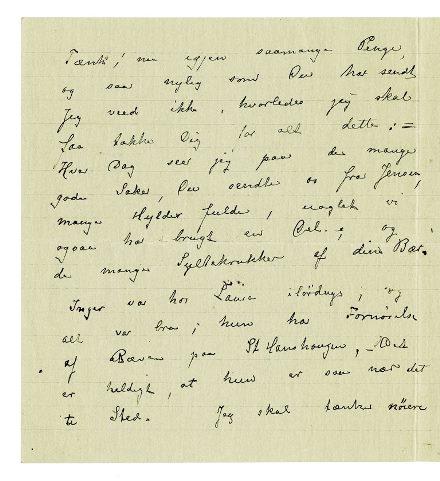 Tænk! nu igjen saamange Penge,
og saa nylig som Du har sendt
Jeg veed ikke, hvorledes jeg skal
faa takke Dig for alt dette; =
Hver Dag seer jeg paa de mange
gode Saker, Du sendte os fra Jensen,
mange Hylder fulde, uagtet vi
ogsaa har brugt en Del. ; og
de mange Syltekrukker af dine Bær.
Inger var hos Laura ilørdags; og
alt var bra; hun har Fornøielse
af Bæven paa St Hanshaugen, – Det
er heldigt, at hun er saa nær det
te Sted. Jeg skal tænke nøiere